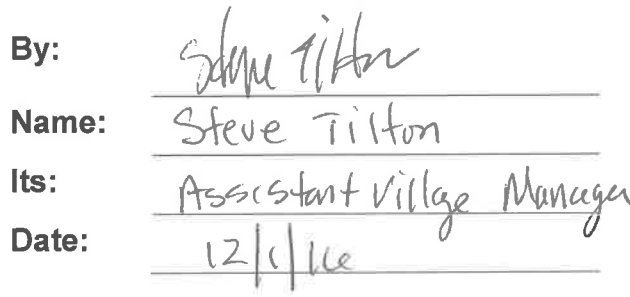 By: Steve Tilton
Name: Steve Tilton
Its: Assistant Village Manager
Date: 12/1/16